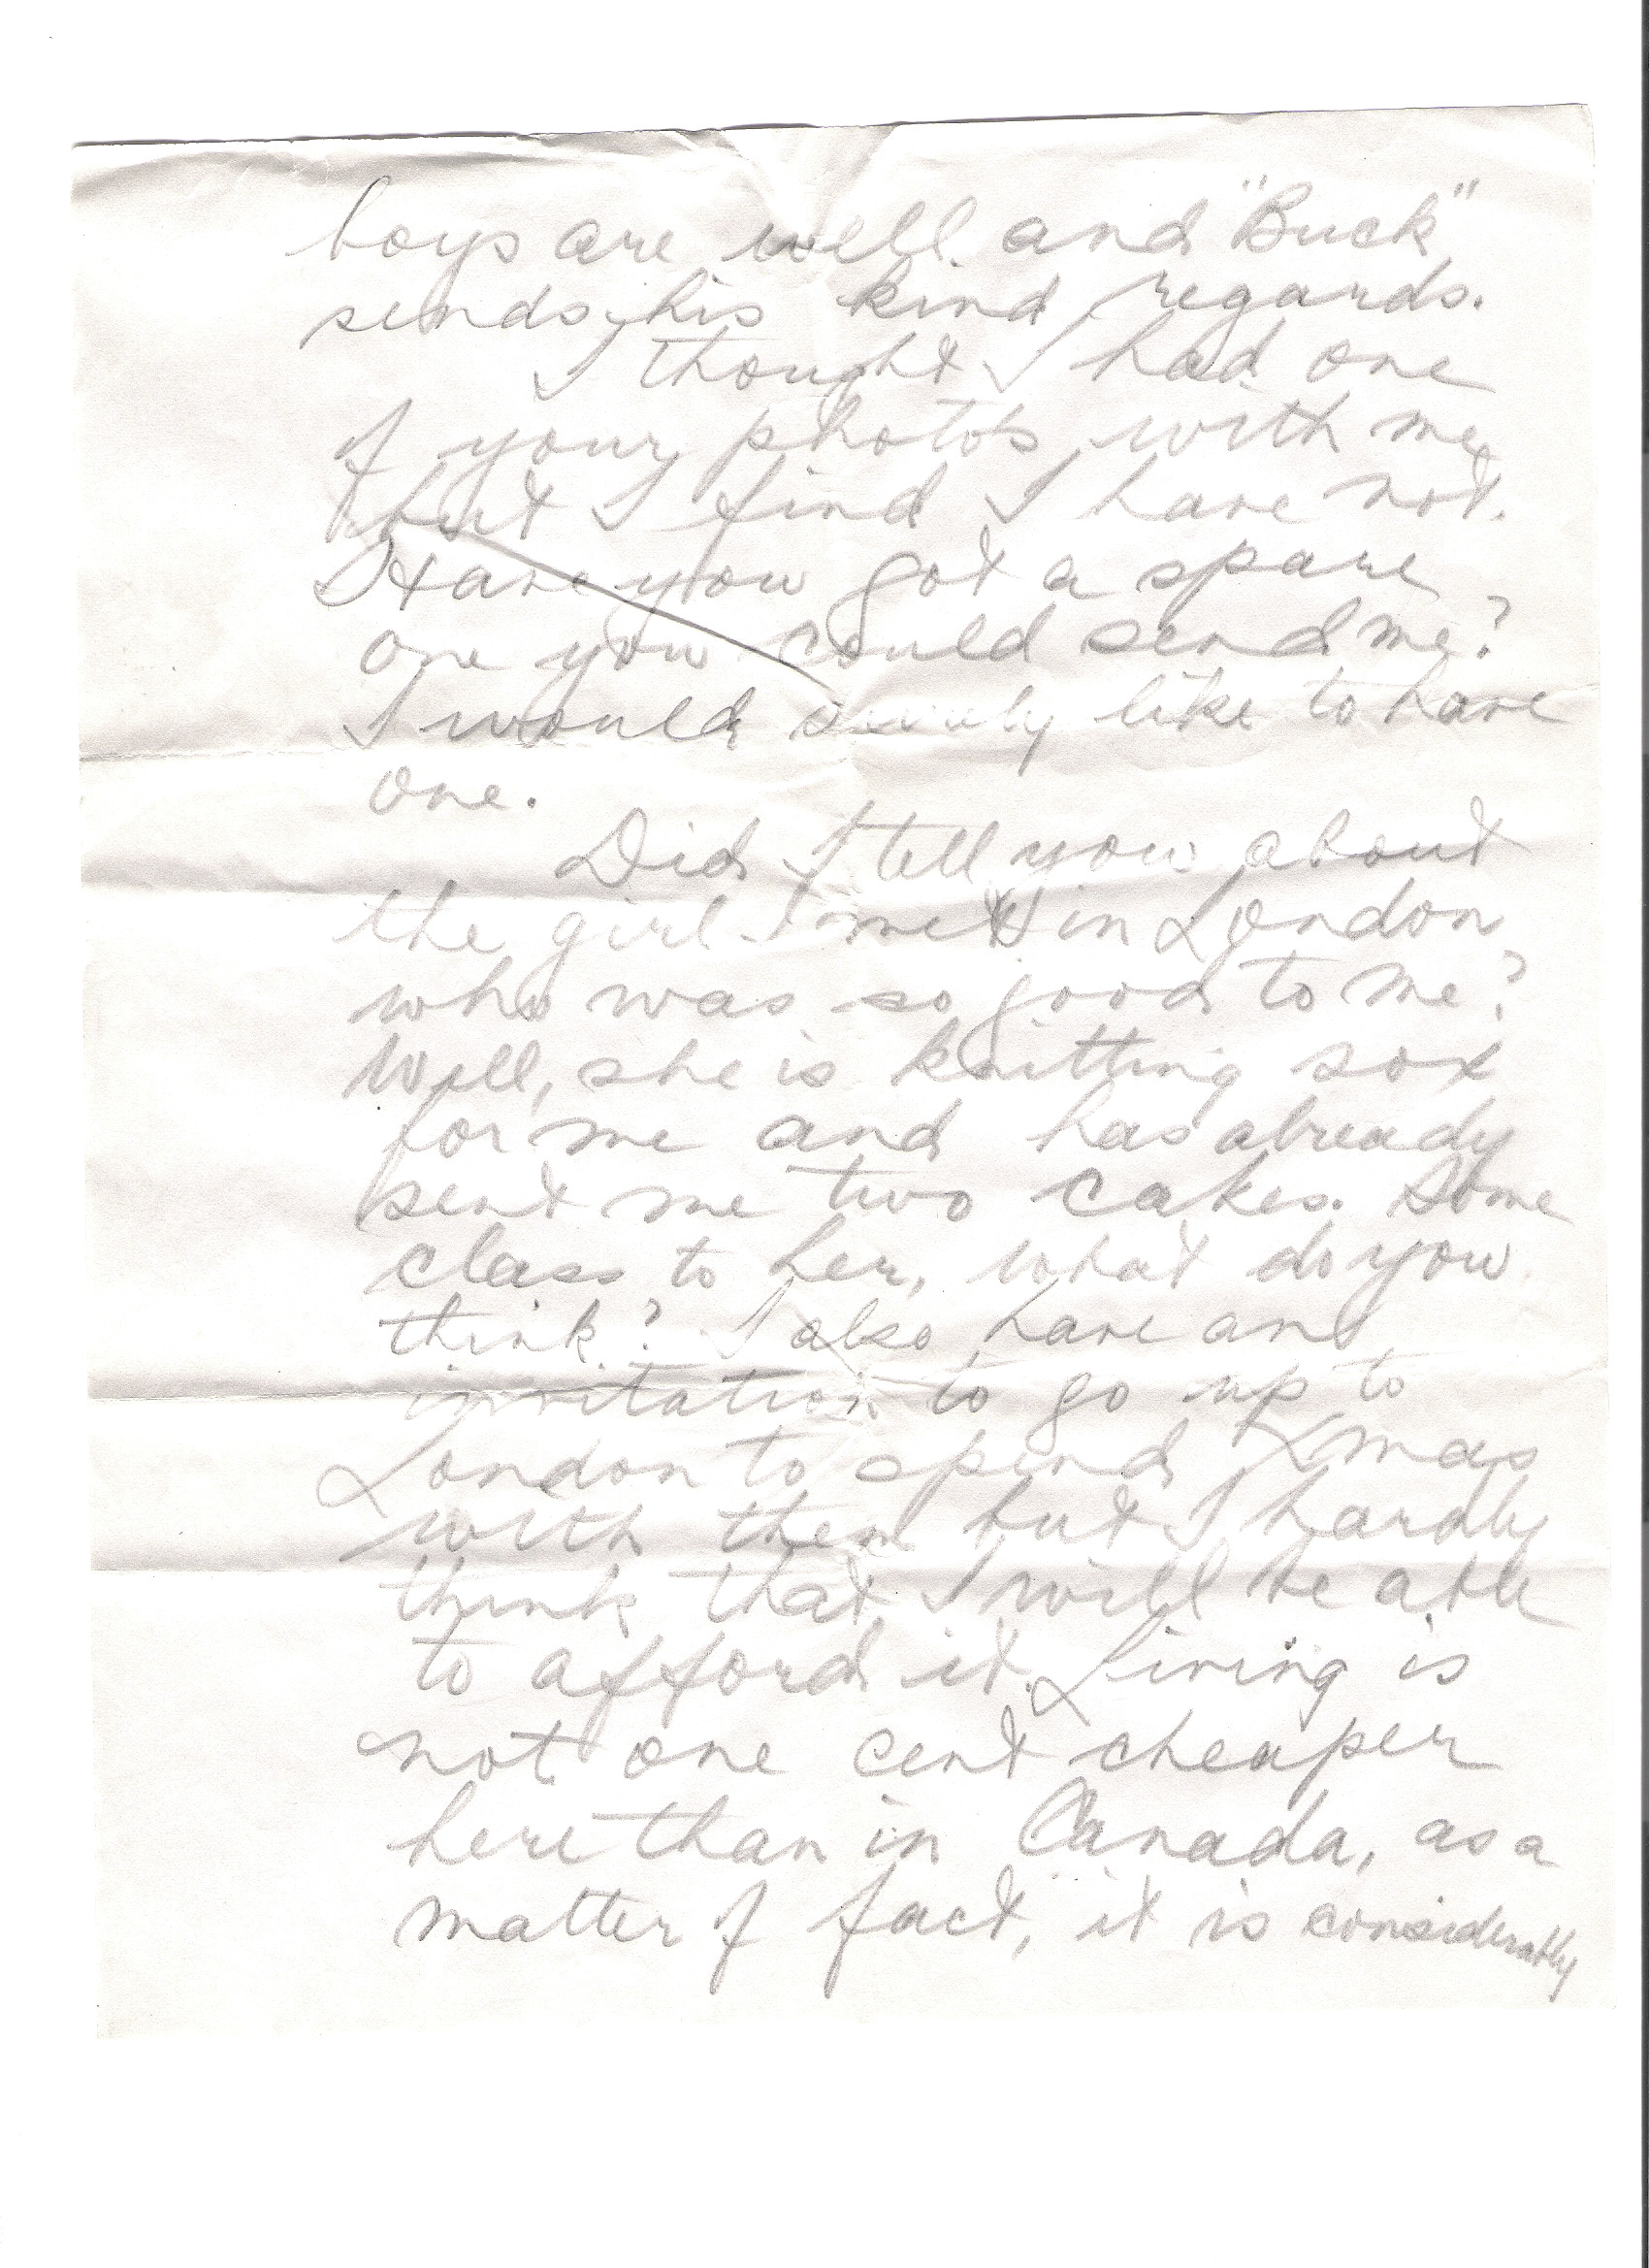 boys are well and "Buck"
sends his kind regards.
I thought I had one
of your photos with me
but I find I have not.
Have you got a spare
one you could send me?
I would like to have
one.
Did I tell you about
the girl I met in London
who was so good to me?
Well, she is knitting sox
for me and has already
sent me two cakes. Some
class to her, what do you
think? I also have an
invitation to go up to
London to spend Xmas
with them but I hardly
think that I will be able
to afford it. Living is
not one cent cheaper
here than in Canada, as a
matter of fact, it is considerably